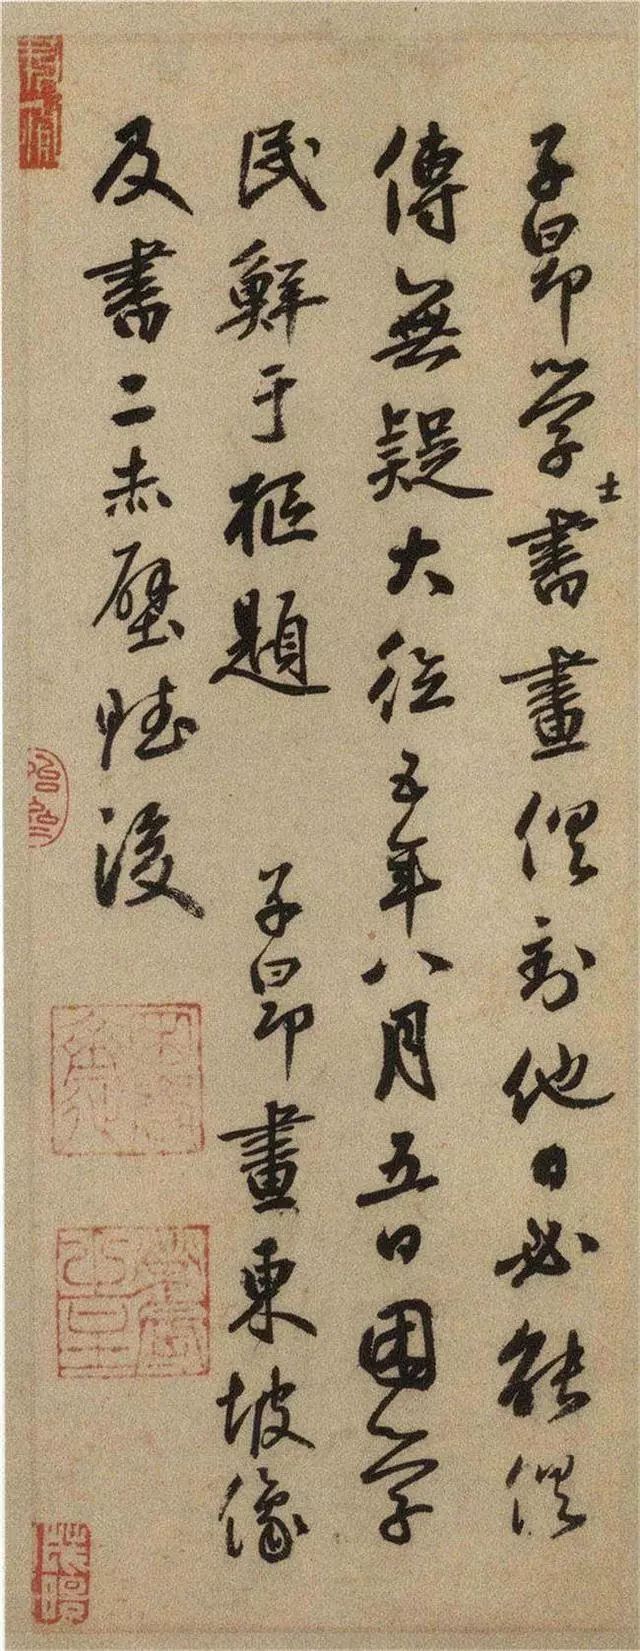 子昂學士書畫俱到他日必能俱
傳無疑大德五年八月五日困學
民鮮于樞題 子昂畫東坡像
及書二赤壁賦後